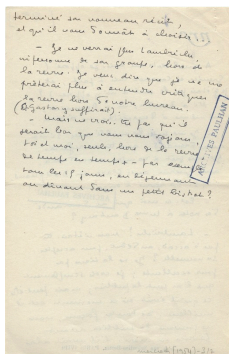 terminé son nouveau récit,
et qu'il nous donnât à choisir.
– Je ne verrai plus Lambrichs,
ni personne de son groupe, hors de
la revue. Je veux dire que je ne me
prêterai plus à entendre critiquer
la revue hors de notre bureau.
(D. Gaston y suffirait).
– Mais ne crois-tu pas qu'il
serait bon que nous nous voyions,
toi et moi, seuls, hors de la revue
de temps en temps – par exemple
tous les 15 jours, en déjeunant
ou dînant dans un petit bistrot ?
ARCHIVES PAULHAN
(1954)